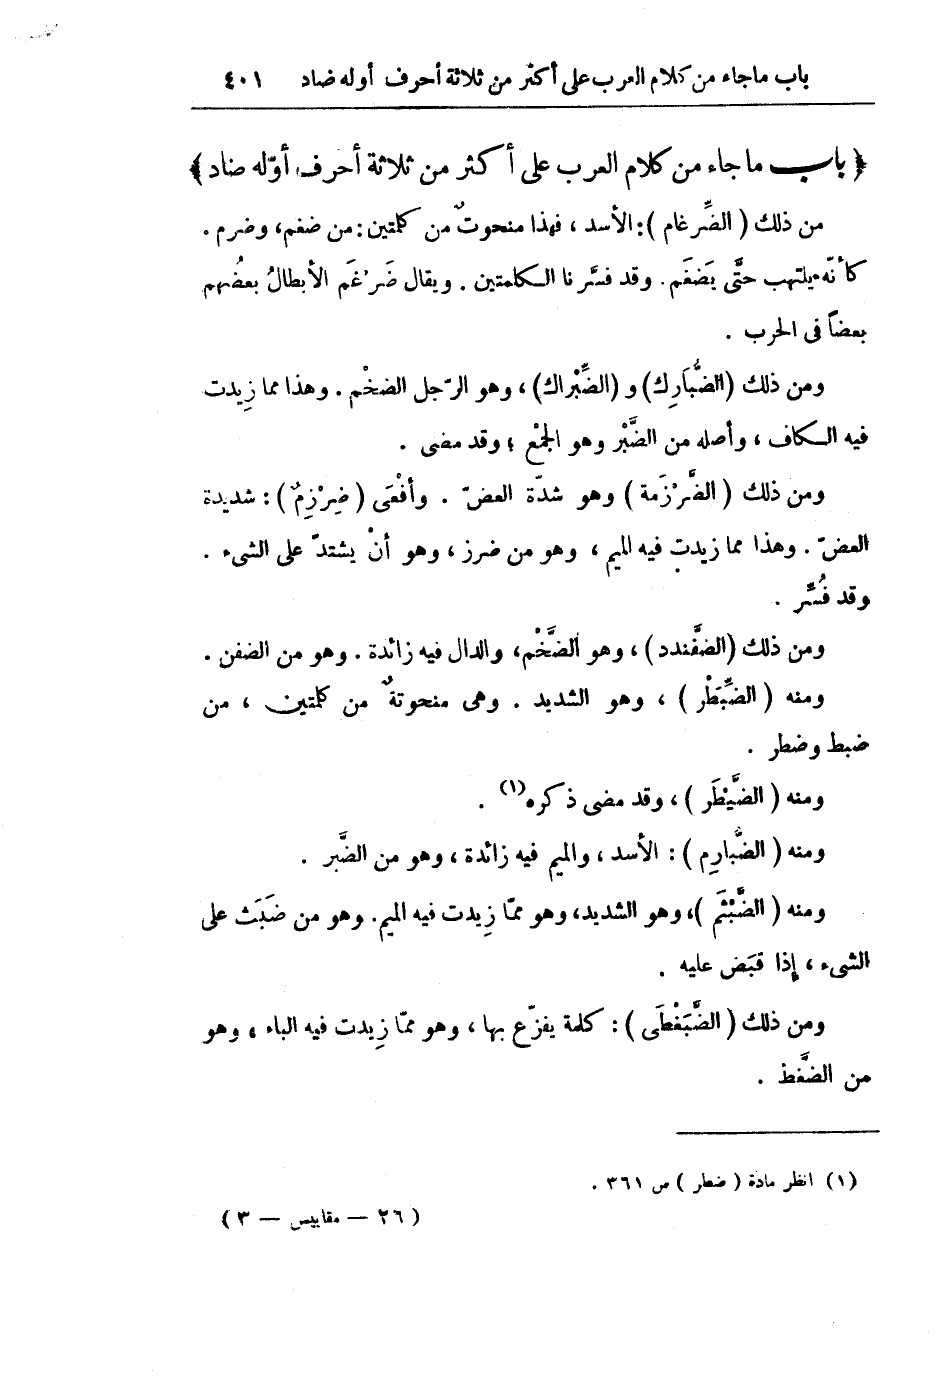 باب ما جاء من كلام العرب على أكثر من ثلاثة أحرف أوله ضاد ٤٠١
﴿ باب ما جاء من كلام العرب على أكثر من ثلاثة أحرف أوّله ضاد ﴾
من ذلك ( الضِّرغام ) : الأسد ، فهذا منحوتٌ من كلمتين : من ضغم، وضرم .
كأنّه يلتهب حتَّى يَضغَم . وقد فسَّرنا الكلمتين . ويقال ضَرْغَم الأبطالُ بعضُهم
بعضاً فى الحرب .
ومن ذلك (الضُّبارِك) و (الضِّبْراك) ، وهو الرّجل الضخْم . وهذا مما زِيدت
فيه الكاف ، وأصله من الضَّبْر وهو الجمْع ؛ وقد مضى .
ومن ذلك ( الضَّرْزَمة ) وهو شدّة العضّ . وأفْعَى ( ضِرْزِمٌ ) : شديدة
العضّ . وهذا مما زيدت فيه الميم ، وهو من ضرز ، وهو أنْ يشتدّ على الشىء .
وقد فُسِّر .
ومن ذلك (الضَّفَندد) ، وهو الضَّخْم، والدال فيه زائدة . وهو من الضفن .
ومنه ( الضِّبَطْر ) ، وهو الشديد . وهى منحوتةٌ من كلمتين ، من
ضبط وضطر .
ومنه ( الضَّيْطَر ) ، وقد مضى ذكره(١) .
ومنه ( الضُّبارِم ) : الأسد ، والميم فيه زائدة ، وهو من الضَّبر .
ومنه ( الضَّبْثَم )، وهو الشديد، وهو ممّا زِيدت فيه الميم. وهو من ضَبَث على
الشىء ، إذا قبَض عليه .
ومن ذلك ( الضَّبَغْطَى ) : كلمة يفزّع بها ، وهو ممّا زِيدت فيه الباء ، وهو
من الضَّغط .
(١) انظر مادة ( ضطر ) ص ٣٦١ .
( ٢٦ — مقاييس — ٣ )